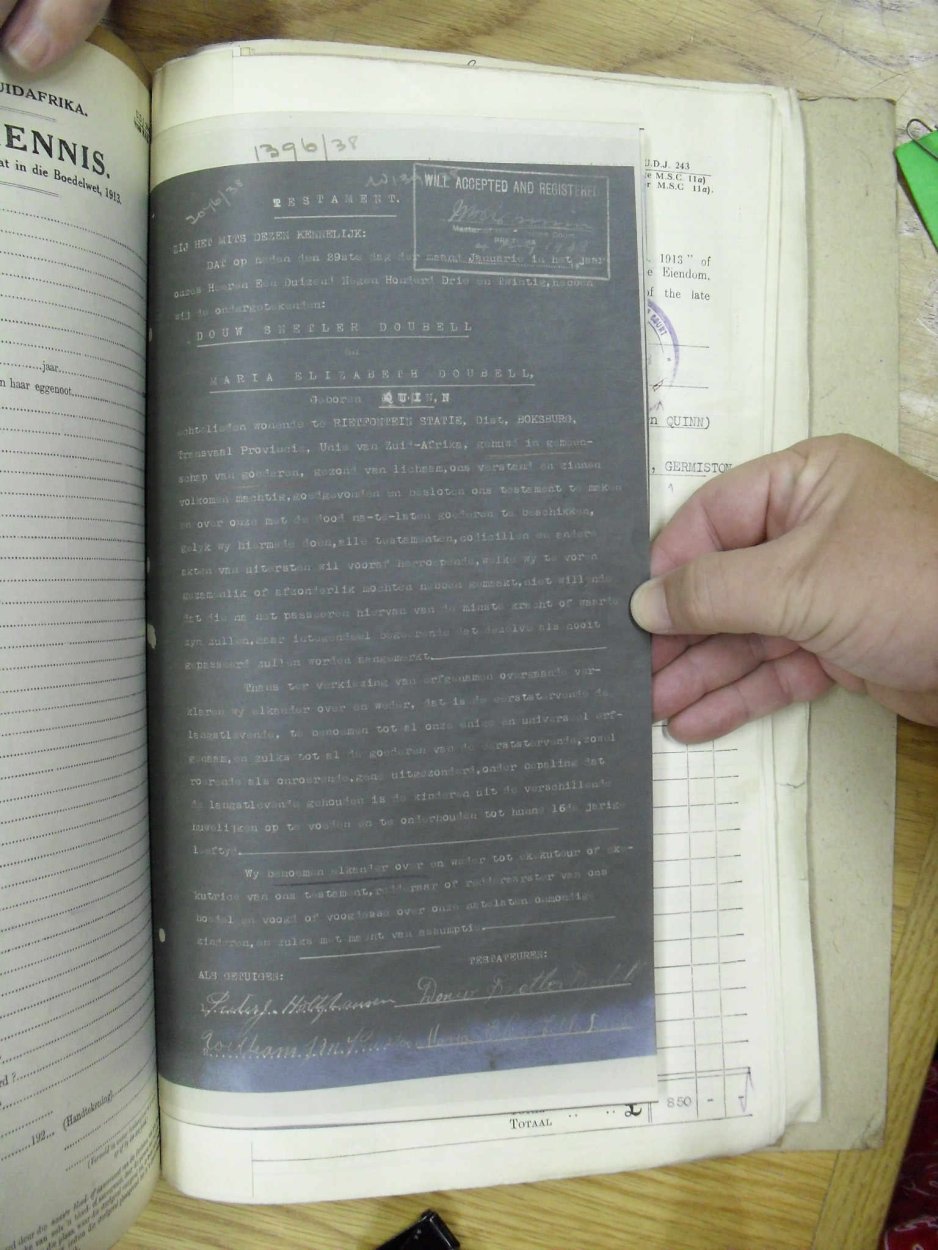 UIDAFRIKA.
ENNIS.
at in die Boedelwet, 1913.
jaar
n haar eggenoot
rd ?
192
(Handtekening)
1396/38
2096/38
WILL ACCEPTED AND REGISTERED
TESTAMENT.
ZIJ HET MITS DEZEN KENNELIJK:
Dat op heden den 29ste dag der maand Januarie in het jaar
onzes Heeren Een Duizend Negen Honderd Drie en Twintig, hebben
wij de ondergetekenden:
DOUW SNETLER DOUBELL
en
MARIA ELIZABETH DOUBELL,
Geboren QUINN
echtelieden wonende te RIETFONTEIN STATIE, Dist, BOKSBURG,
Transvaal Provincie, Unie van Zuid-Afrika, gehuwd in gemeen-
schap van goederen, gezond van lichaam, ons verstand en zinnen
volkomen machtig, goedgevonden en besloten ons testament te maken
en over onze met de dood na-te-laten goederen te beschikken,
gelyk wy hiermede doen, alle testamenten, codicillen en andere
akten van uitersten wil vooraf herroepende, welke wy te voren
gezamenlik of afzonderlik mochten hebben gemaakt, niet willende
dat die na het passeeren hiervan van de minste kracht of waarde
zyn zullen, maar integendeel begeerende dat dezelve als nooit
gepasseerd zullen worden aangemerkt.
Thans ter verkiezing van erfgenamen overgaande ver-
klaren wy elkander over en weder, dat is de eerststervende de
langstlevende, te benoemen tot al onze enige en universeel erf-
genaam, en zulks tot al de goederen van de eerststervende, zowel
roerende als onroerende, geen uitgezonderd, onder bepaling dat
de langstlevende gehouden is de kinderen uit de verschillende
huwelijken op te voeden en te onderhouden tot hunne 16de jarige
leeftyd.
Wy benoemen elkander over en weder tot eksekuteur of ekse-
kutrice van ons testament, redderaar of redderaarster van ons
boedel en voogd of voogdesse over onze natelaten onmondige
kinderen, en zulks met macht van assumptie.
TESTATEUREN:
ALS GETUIGEN:
Holtzhausen
U.D.J. 243
e M.S.C 11a)
r M.S.C 11a).
1913" of
e Eiendom,
of the late
n QUINN)
, GERMISTON
TOTAAL .. .. £ 850 -